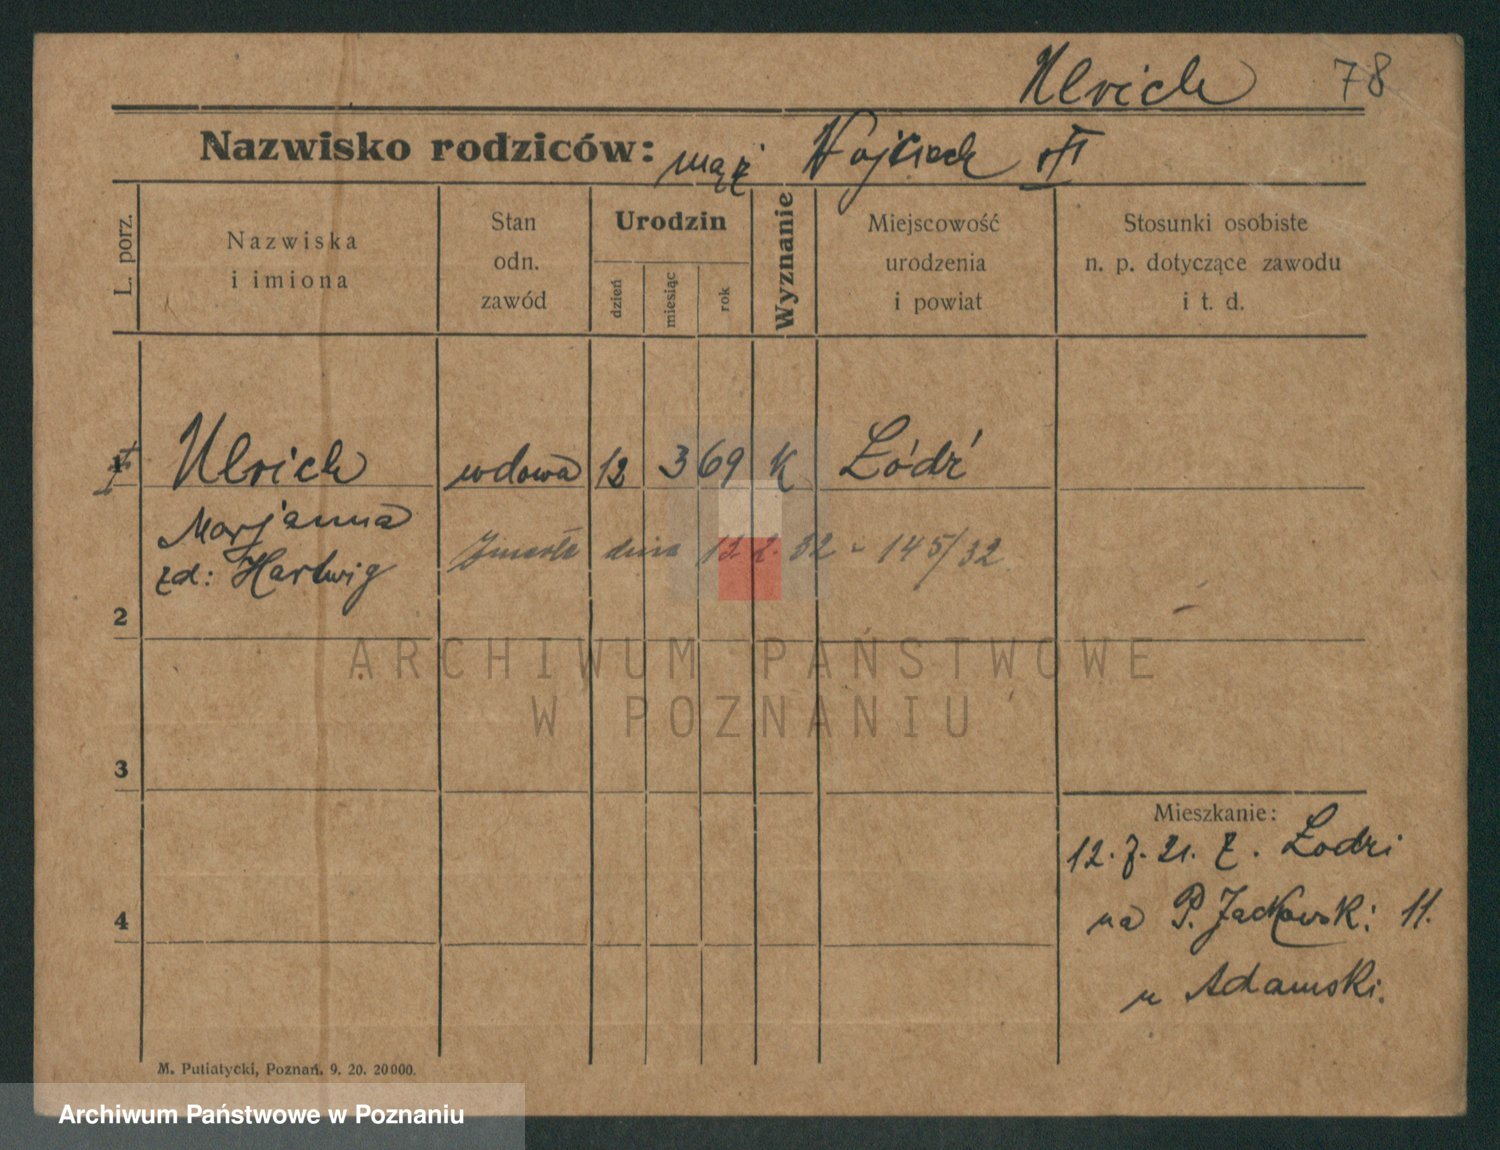 Ulrich 78
Nazwisko rodziców: mąż Wojciech
L. porz.
Nazwiska
i imiona
Stan
odn.
zawód
Urodzin
dzień
miesiąc
rok
Wyznanie
Miejscowość
urodzenia
i powiat
Stosunki osobiste
n. p. dotyczące zawodu
i t. d.
Ulrich wdowa 12 3 69 K Łódź
Marjanna
Zmarła dnia 12 2. 32 - 145/32
zd: Hartwig
2
ARCHIWUM PAŃSTWOWE
W POZNANIU
3
Mieszkanie:
12. 7. 21. z. Łodzi
na P. Jackowski: 11.
4
u Adamski.
M. Putiatycki, Poznań. 9. 20. 20000.
Archiwum Państwowe w Poznaniu